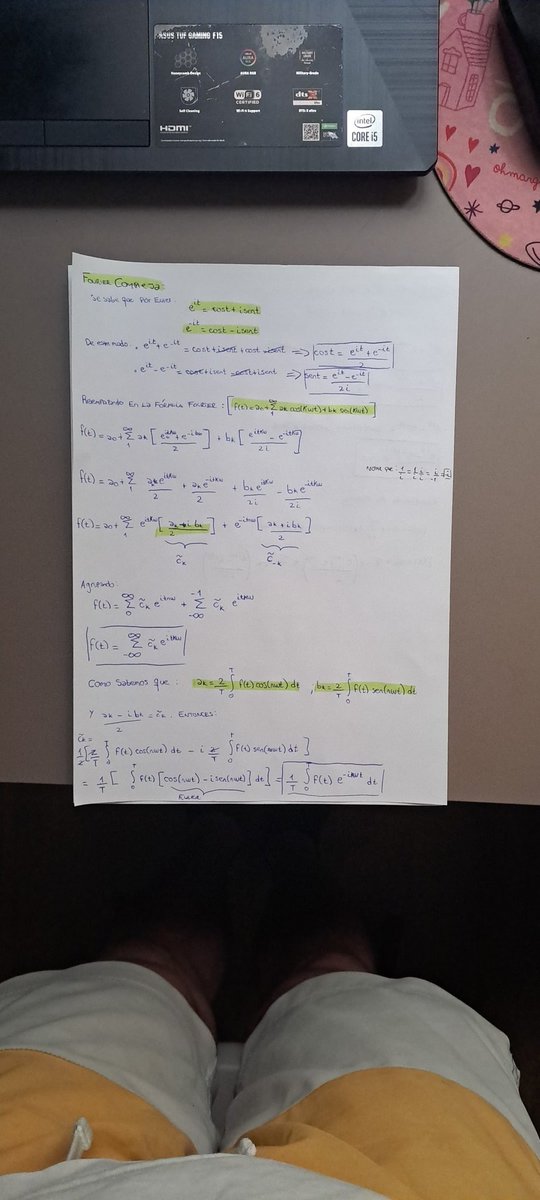 ASUS TUF GAMING F15
Honeycomb Design
Military-Grade
Self Cleaning
Wi-Fi 6 CERTIFIED
Wi-Fi 6 Support
dts X
HDMI
intel
CORE i5
ohmarg
FOURIER COMPLEJA:
Se sabe que por Euler:
e^{it} = cost + i sent
e^{-it} = cost - i sent
De este modo • e^{it} + e^{-it} = cost + i sent + cost - i sent => cost = \frac{e^{it} + e^{-it}}{2}
• e^{it} - e^{-it} = cost + i sent - cost + i sent => sent = \frac{e^{it} - e^{-it}}{2i}
EN LA FÓRMULA FOURIER: [f(t) = a_0 + \sum_1^∞ a_k cos(kwt) + b_k sen(kwt)]
f(t) = a_0 + \sum_1^∞ a_k [\frac{e^{itkw} + e^{-itkw}}{2}] + b_k [\frac{e^{itkw} - e^{-itkw}}{2i}]
NOTAR QUE: \frac{1}{i} = \frac{1}{i} \frac{i}{i} = \frac{i}{-1}
f(t) = a_0 + \sum_1^∞ \frac{a_k e^{itkw}}{2} + \frac{a_k e^{-itkw}}{2} + \frac{b_k e^{itkw}}{2i} - \frac{b_k e^{-itkw}}{2i}
f(t) = a_0 + \sum_1^∞ e^{itkw} [\frac{a_k - i b_k}{2}] + e^{-itkw} [\frac{a_k + i b_k}{2}]
\tilde{c}_k \tilde{c}_{-k}
Agrupando:
f(t) = \sum_0^∞ \tilde{c}_k e^{itkw} + \sum_{-∞}^{-1} \tilde{c}_k e^{itkw}
f(t) = \sum_{-∞}^∞ \tilde{c}_k e^{itkw}
COMO SABEMOS QUE: a_k = \frac{2}{T} \int_0^T f(t) cos(nwt) dt , b_k = \frac{2}{T} \int_0^T f(t) sen(nwt) dt
Y \frac{a_k - i b_k}{2} = \tilde{c}_k. ENTONCES:
\tilde{c}_k =
\frac{1}{2} [\frac{2}{T} \int_0^T f(t) cos(nwt) dt - i \frac{2}{T} \int_0^T f(t) sen(nwt) dt]
= \frac{1}{T} [\int_0^T f(t) [cos(nwt) - i sen(nwt)] dt] = \frac{1}{T} \int_0^T f(t) e^{-inwt} dt
EULER